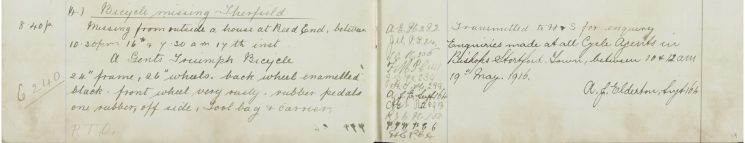 8.40p
11.) Bicycle missing - Therfield
Missing from outside a house at Reed End, between
10.30pm 16th & 7.30 am 17th inst.
A Gents Triumph Bicycle
24" frame, 26" wheels. back wheel enamelled
black. front wheel, very rusty. rubber pedals
one rubber, off side, Tool bag & carrier.
P.T.O.
E 240
Transmitted to H & S for enquiry
Enquiries made at all Cycle Agents in
Bishops Stortford Town, between 10 & 12 am
19th May. 1916.
A. J. Elderton, Sergt 164